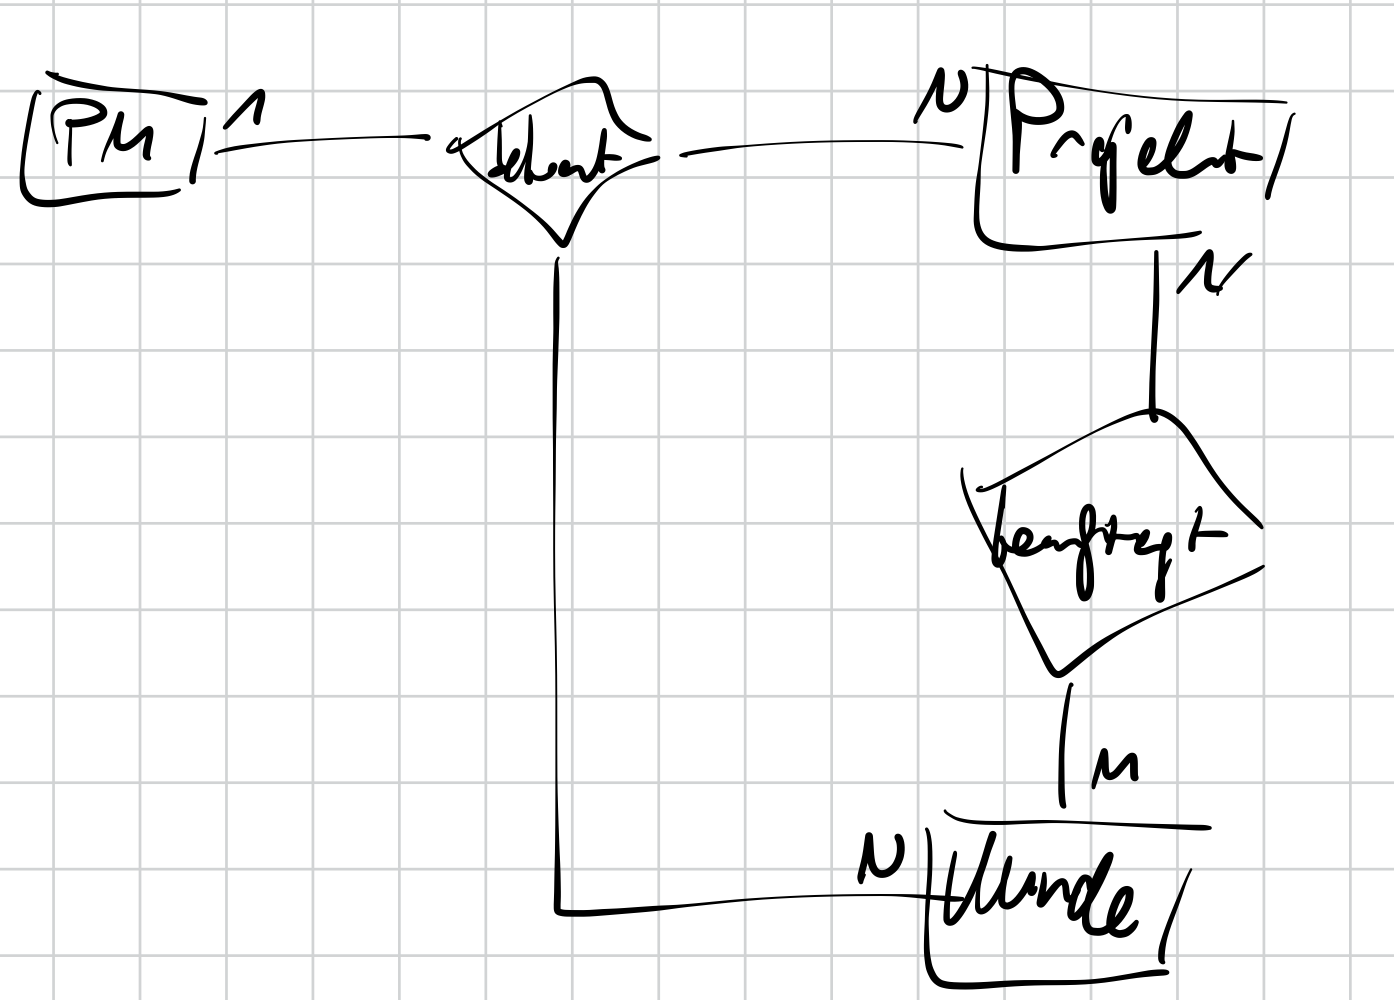 PM
1
N
Projekt
N
beauftragt
M
N
Kunde